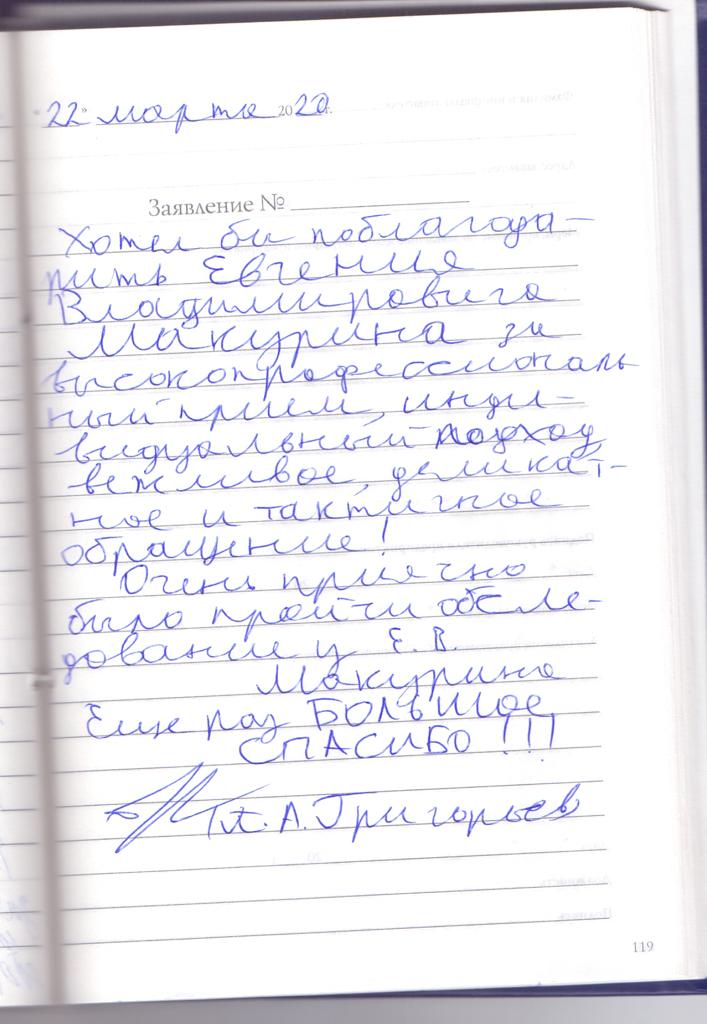 "22" марта 2020 г.
Заявление №
Хотел бы поблагода-
рить Евгения
Владимировича
Макурина за
высокопрофессиональ
ный прием, инди-
видуальный подход
вежливое, деликат-
ное и тактичное
обращение!
Очень приятно
было пройти обсле-
дование у Е.В.
Макурина
Еще раз БОЛЬШОЕ
СПАСИБО !!!
А. Григорьев
119